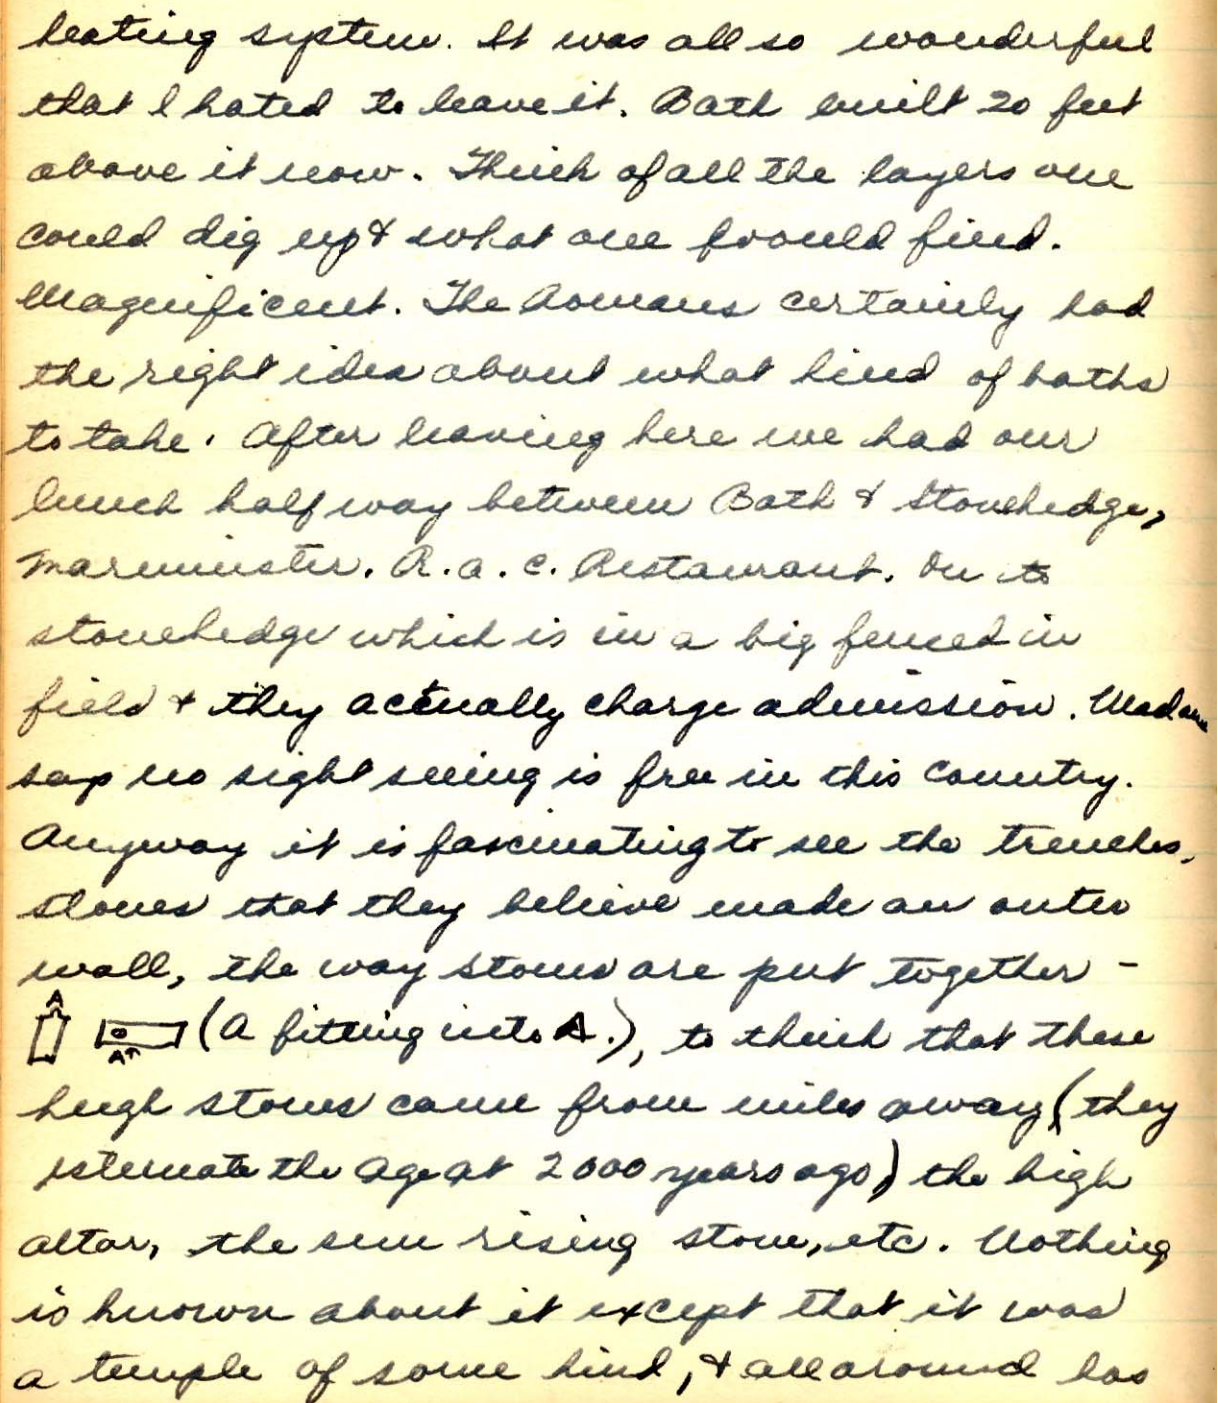 heating system. It was all so wonderful
that I hated to leave it. Bath built 20 feet
above it now. Think of all the layers one
could dig up & what one would find.
Magnificent. The Romans certainly had
the right idea about what kind of baths
to take. After leaving here we had our
lunch half way between Bath & Stonehedge,
Marminster. R.A.C. Restaurant. On to
stonehedge which is in a big fenced in
field & they actually charge admission. Madame
say no sight seeing is free in this country.
Anyway it is fascinating to see the trenches,
stones that they believe made an outer
wall, the way stones are put together -
A A (A fitting into A.), to think that these
hugh stones came from miles away (they
estemate the age at 2000 years ago) the high
altar, the sun rising stone, etc. Nothing
is known about it except that it was
a temple of some kind, & all around has